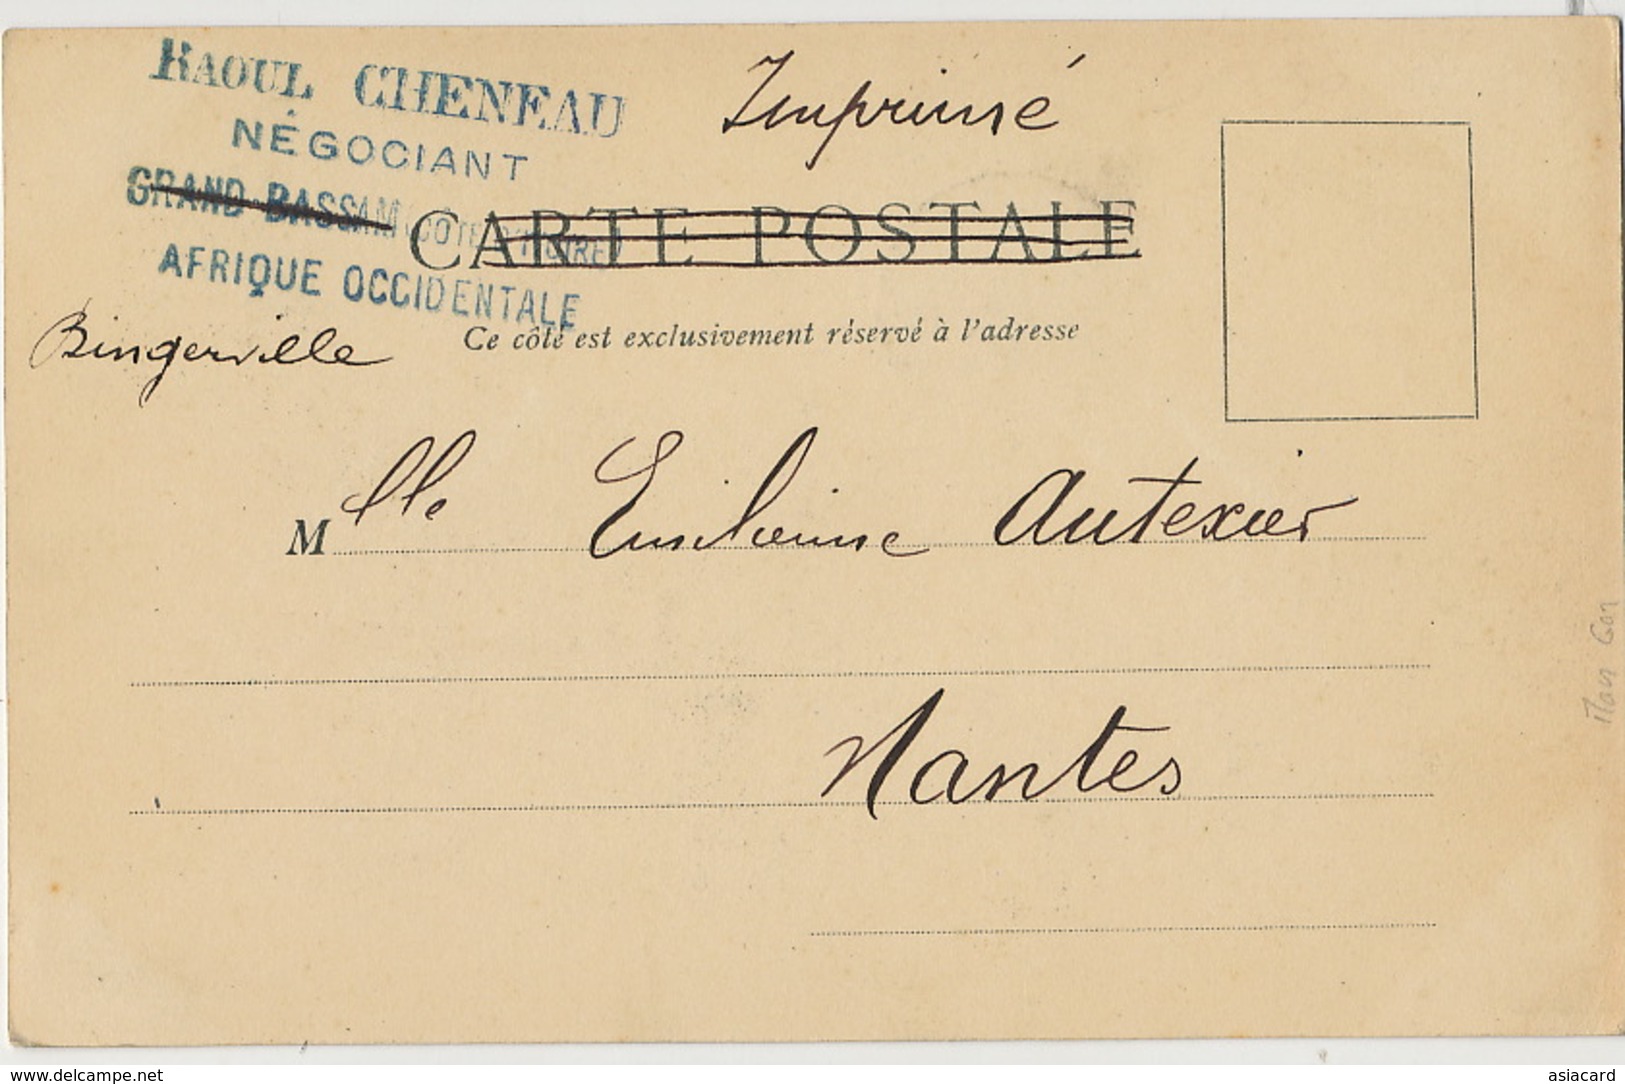 RAOUL CHENEAU
NÉGOCIANT
GRAND-BASSAM (CÔTE D'IVOIRE)
AFRIQUE OCCIDENTALE
Imprimé
CARTE POSTALE
Ce côté est exclusivement réservé à l'adresse
Bingerville
Mlle Emilienne Autexier
Nantes
www.delcampe.net
asiacard